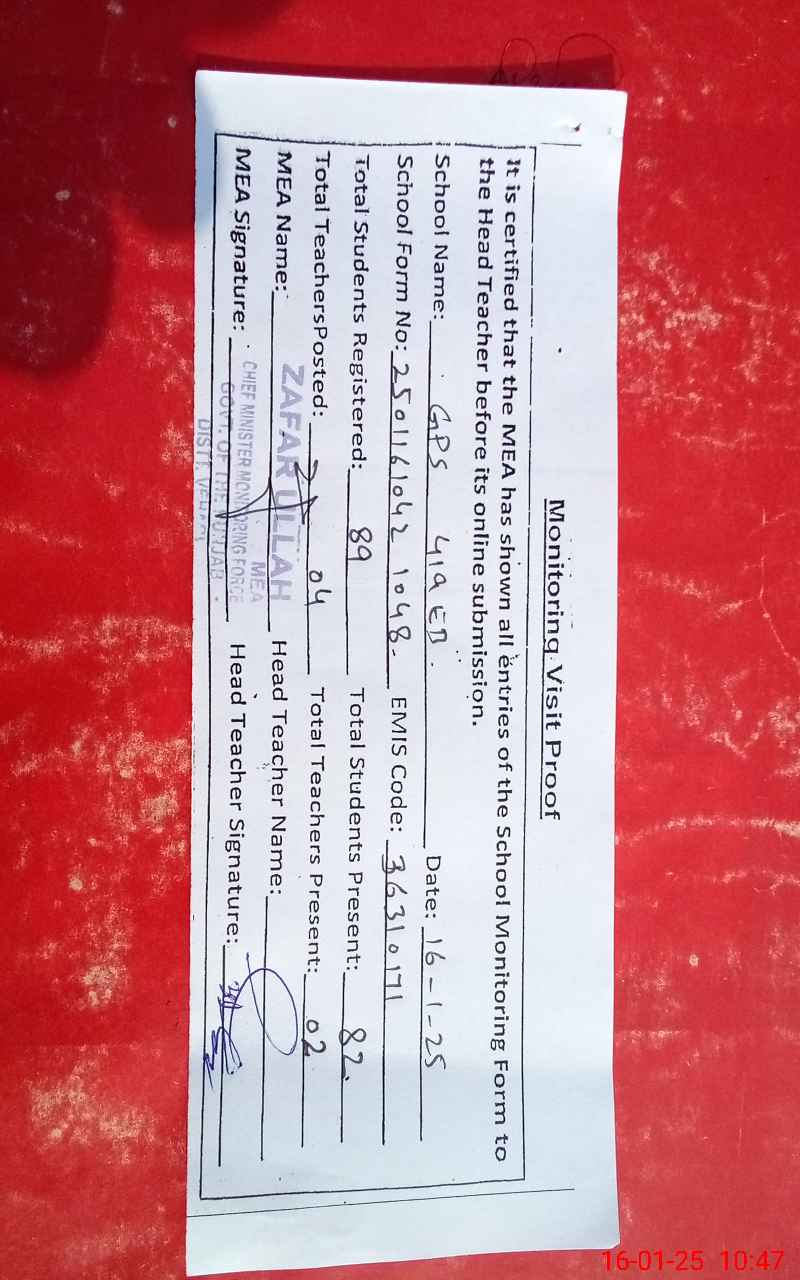 Monitoring Visit Proof
It is certified that the MEA has shown all entries of the School Monitoring Form to
the Head Teacher before its online submission.
School Name: GPS 419 EB. Date: 16-1-25
School Form No: 2501161042 1048- EMIS Code: 36310171
Total Students Registered: 89 Total Students Present: 82
Total TeachersPosted: 04 Total Teachers Present: 02
MEA Name: ZAFAR ULLAH Head Teacher Name:
MEA
MEA Signature: Head Teacher Signature:
CHIEF MINISTER MONITORING FORCE
GOVT. OF THE PUNJAB
DISTT. VEHARI
16-01-25 10:47